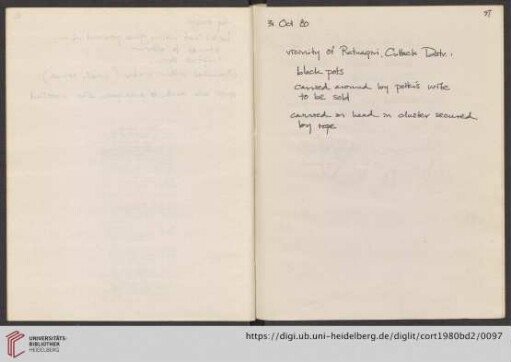 37
31 Oct 80
vicinity of Ratnagiri, Cuttack Distr.:
black pots
carried around by potter's wife
to be sold
carried on head in cluster secured
by rope
UNIVERSITÄTS-
BIBLIOTHEK
HEIDELBERG
https://digi.ub.uni-heidelberg.de/diglit/cort1980bd2/0097